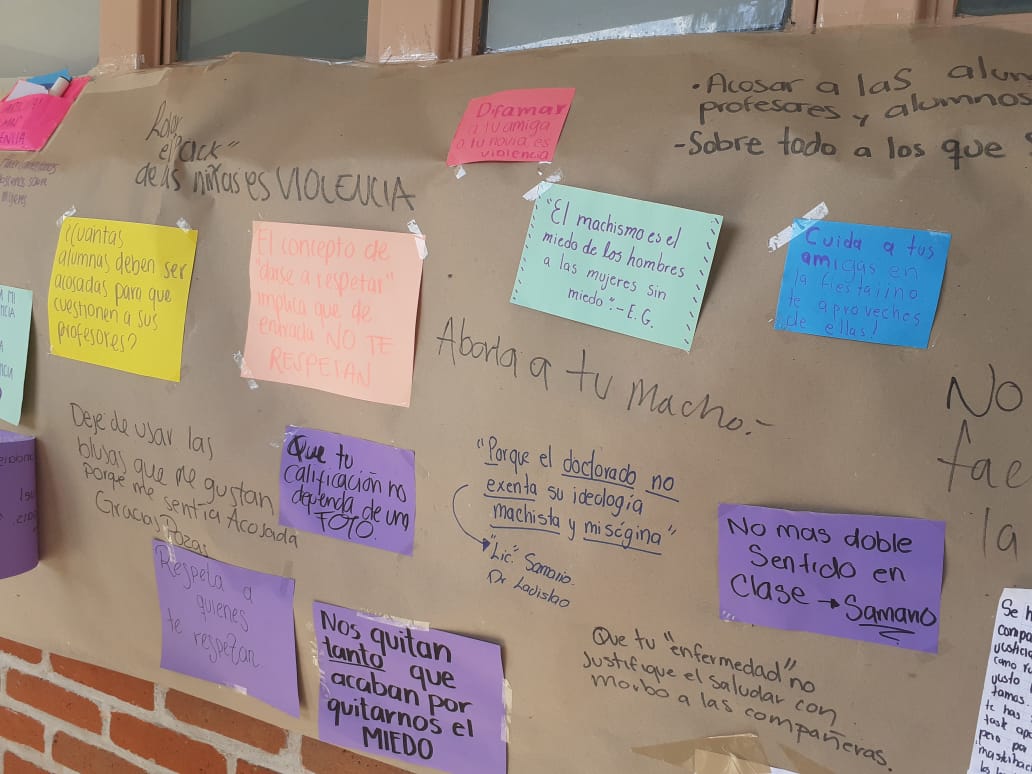 Robar
el "Pack"
de las niñas es VIOLENCIA
Difamar
a tu amiga
o tu novia es
violencia
•Acosar a las
profesores y alumnos
-Sobre todo a los que
¿Cuantas
alumnas deben ser
acosadas para que
cuestionen a sus
profesores?
El concepto de
"darse a respetar"
implica que de
entrada NO TE
RESPETAN
"El machismo es el
miedo de los hombres
a las mujeres sin
miedo".-E.G.
Cuida a tus
amigas en
la fiesta ¡no
te aproveches
de ellas!
Aborta a tu Macho.-
No
la
Deje de usar las
blusas que me gustan
porqe me sentía Acosada
Gracias Pozas
Que tu
calificación no
dependa de una
FOTO.
"Porque el doctorado no
exenta su ideología
machista y misógina"
"Lic". Samano.
Dr Ladislao
No mas doble
Sentido en
Clase → Samano
Respeta a
quienes
te respetan
Nos quitan
tanto que
acaban por
quitarnos el
MIEDO
Que tu "enfermedad" no
justifique el saludar con
morbo a las compañeras.
justo
te has
pero